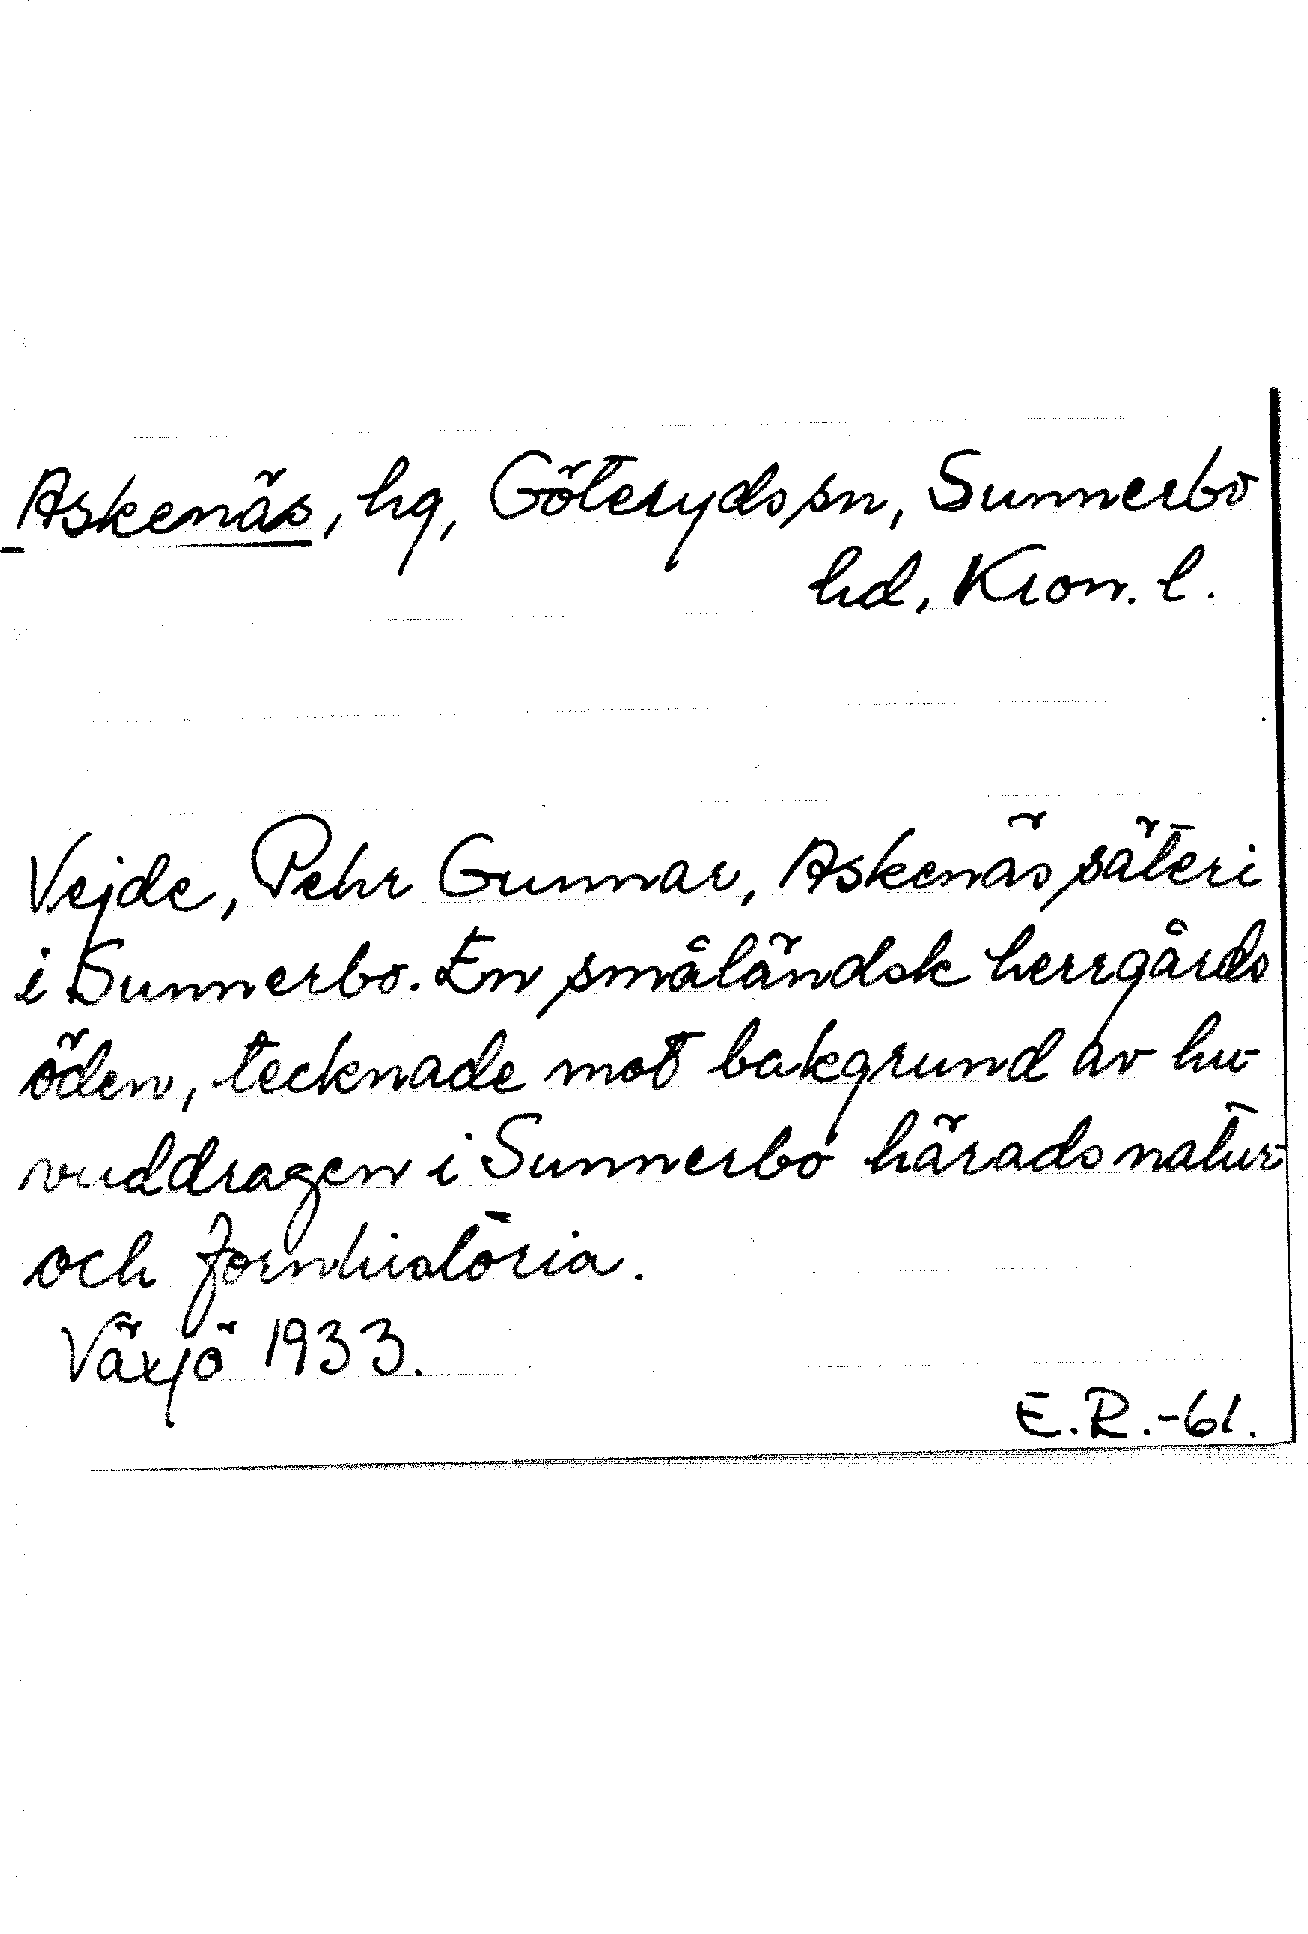 Askenäs, hg, Göteryds sn, Sunnerbo
hd, Kron. l.
Vejde, Pehr Gunnar, Askenäs säteri
i Sunnerbo. En småländsk herrgårds
öden, tecknade mot bakgrund av hu-
vuddragen i Sunnerbo härads natur-
och fornhistoria.
Växjö 1933.
E.R.-61.